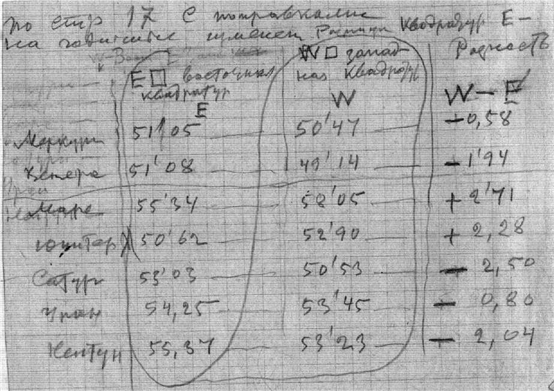 по стр 17 с поправками
на годичные измен. Разницы квадратур E–
E□ восточная квадратур E
W□ запад ная квадратур W
Разность W – E
Меркури 51'05 50'47 – 0,58
Венера 51'08 49'14 – 1'94
Марс 55'34 58'05 + 2'71
Юпитер 50'62 52'90 + 2,28
Сатурн 53'03 50'53 – 2,50
Уран 54,25 53'45 – 0,80
Нептун 55,37 53'23 – 2,04